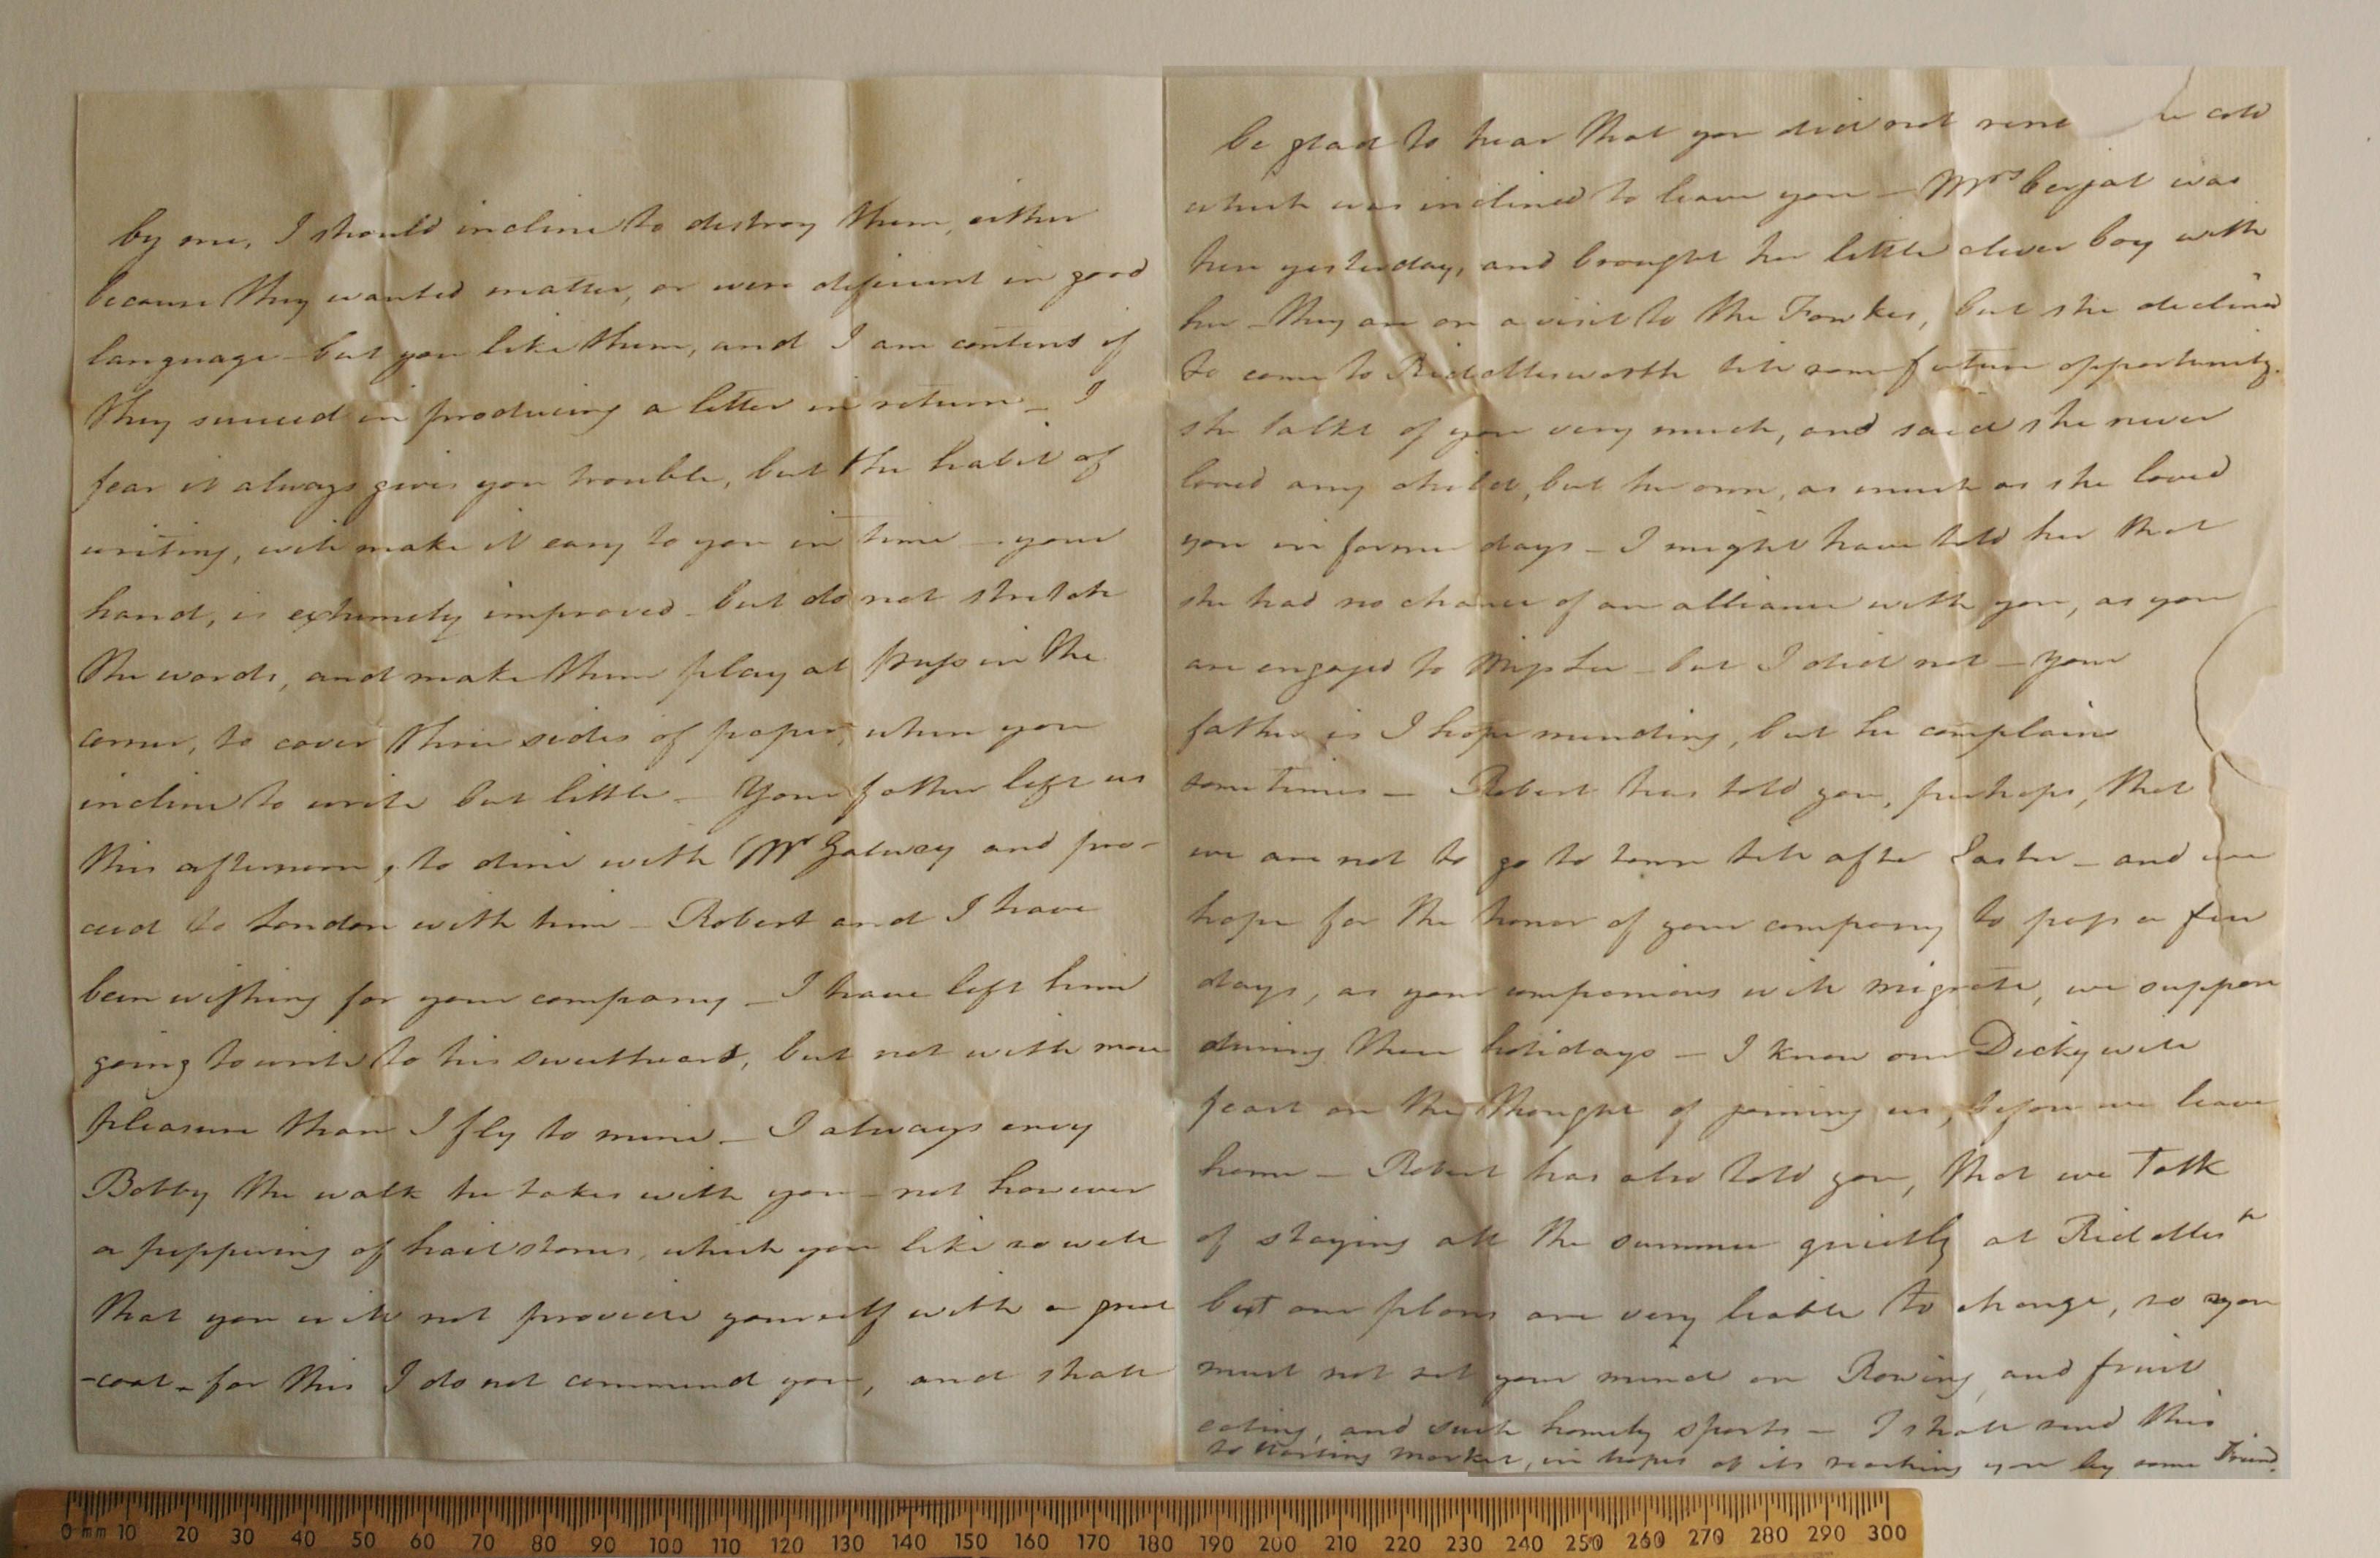 by me, I should incline to destroy them, either
because they wanted matter, or were deficient in good
language - but you like them, and I am content if
they succeed in producing a letter in return - I
fear it always gives you trouble, but the habit of
writing, will make it easy to you in time - your
hand, is extremely improved - but do not stretch
the words, and make them play at puss in the
corner, to cover three sides of paper, when you
incline to write but little - Your father left us
this afternoon, to dine with Mr Galway and pro-
ceed to London with him - Robert and I have
been wishing for your company - I have left him
going to write to his sweetheart, but not with more
pleasure than I fly to mine - I always envy
Bobby the walk he takes with you - not however
a peppering of hailstones, which you like so well
that you will not provide yourself with a great
-coat - for this I do not commend you, and shall
be glad to hear that you did not cold
which was inclined to leave you - Mrs Cerjat was
here yesterday, and brought her little clever boy with
her - they are on a visit to the Fowkes, but she declined
to come to Riddlesworth till some future opportunity.
she talks of you very much, and said she never
loved any child, but her own, as much as she loved
you in former days - I might have told her that
she had no chance of an alliance with you, as you
are engaged to Miss Lee - but I did not - your
father is I hope mending, but he complains
sometimes - Robert has told you, perhaps, that
we are not to go to town till after Easter - and we
hope for the honor of your company to pass a few
days, as your companions will migrate, we suppose
during these holidays - I know our Dicky will
feast on the thought of joining us, before we leave
home - Robert has also told you, that we Talk
of staying all the summer quietly at Riddlesth
but our plans are very liable to change, so you
must not set your mind on Rowing, and fruit
eating, and such homely sports - I shall send this
to Harling market, in hopes of its reaching you by some Friend.